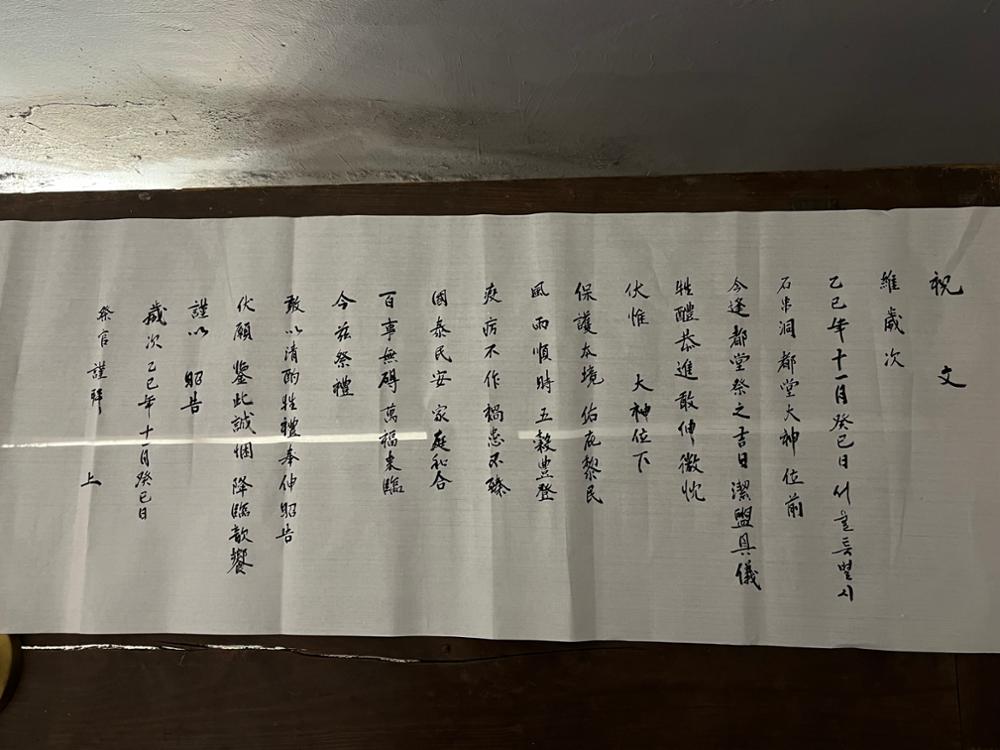 祝文
維歲次
乙巳年十一月癸巳日서울특별시
石串洞 都堂大神 位前
今逢都堂祭之吉日潔盥具儀
牲醴恭進敢伸微忱
伏惟 大神位下
保護本境 佑庇黎民
風雨順時 五穀豊登
疫病不作 禍患不臻
國泰民安 家庭和合
百事無碍 萬福來臨
今玆祭禮
敢以清酌牲禮奉伸昭告
伏願 鑒此誠悃 降臨歆饗
謹以 昭告
歲次乙巳年十一月癸巳日
祭官 謹拜 上